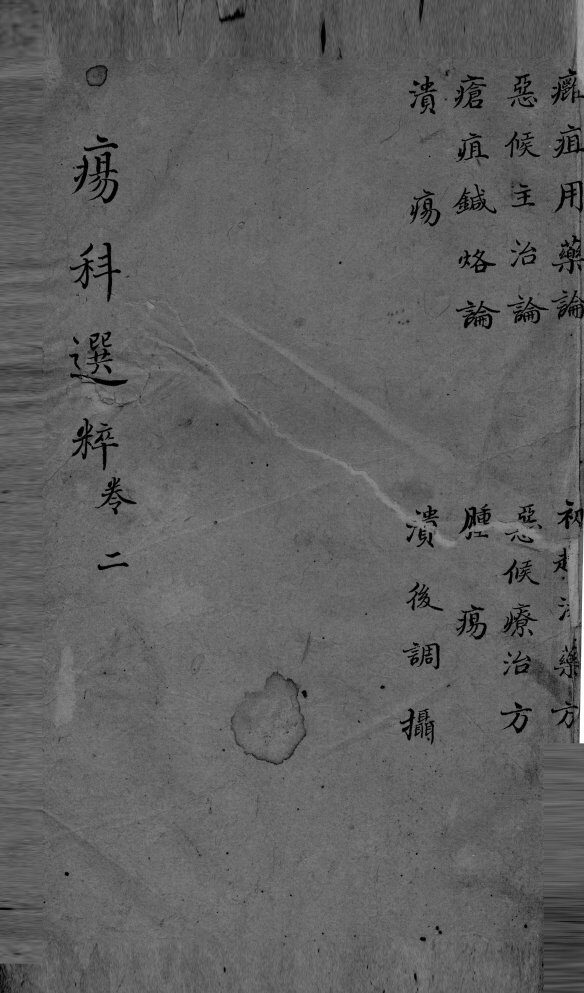 癰疽用藥論 初起藥方
惡候主治論 惡候療治方
瘡疽鍼烙論 腫瘍
潰瘍 潰後調攝
瘍科選粹卷二